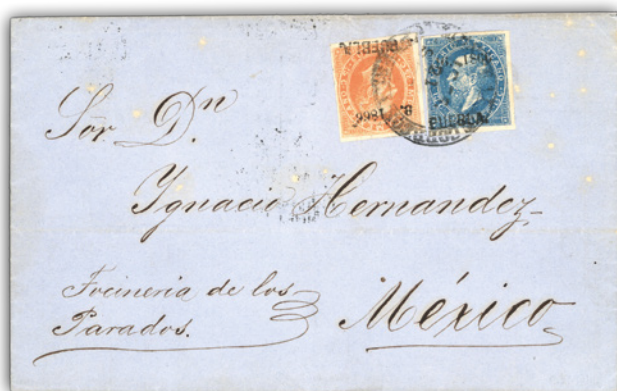 PUEBLA
8. 1866
PUEBLA
Sor. Dn
Ygnacio Hernandez
Tocineria de los
Parados.
México